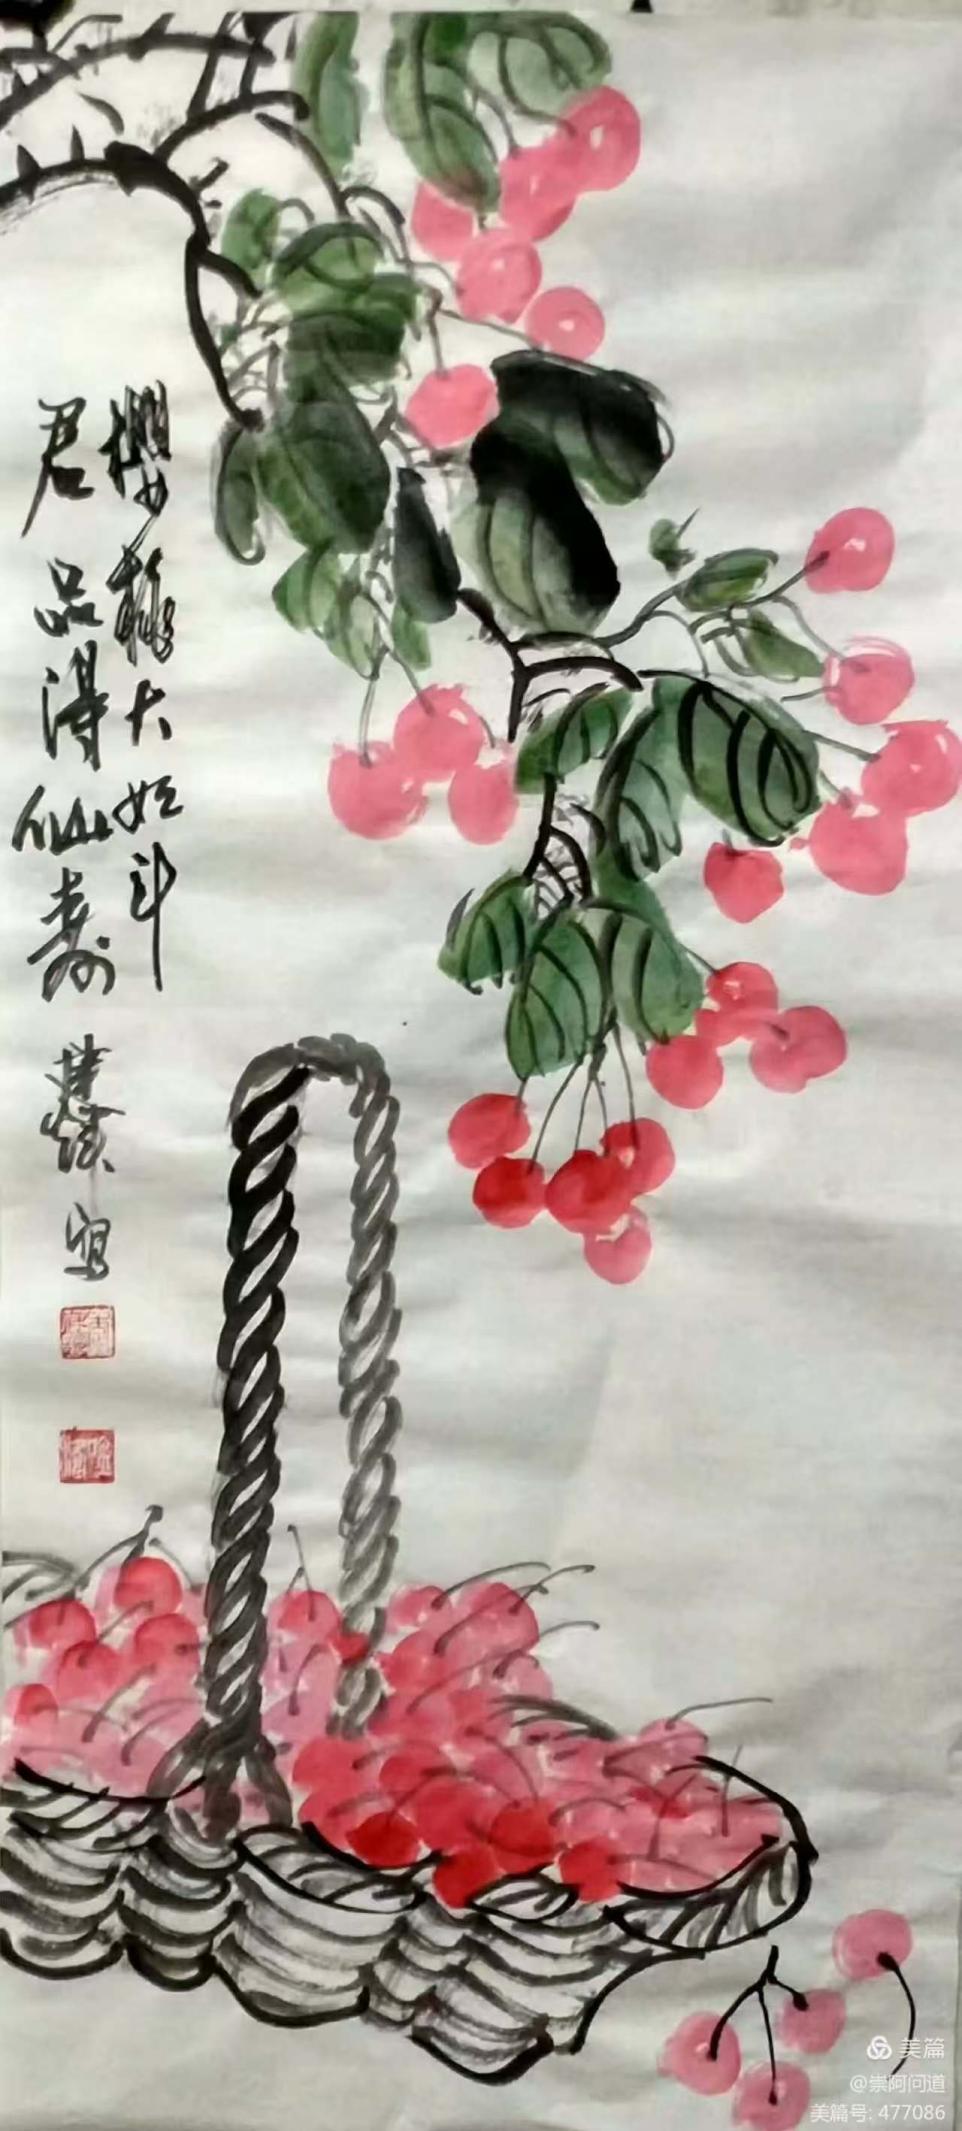 櫻桃大如斗
君品得仙壽
寫
美篇
@崇阿问道
美篇号: 477086